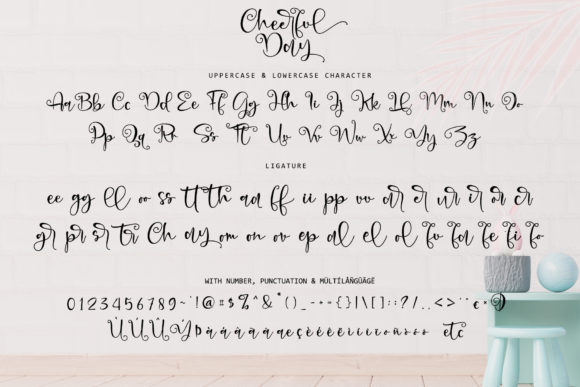 Cheerful
Day
UPPERCASE & LOWERCASE CHARACTER
Aa Bb Cc Dd Ee Ff Gg Hh Ii Jj Kk Ll Mm Nn Oo
Pp Qq Rr Ss Tt Uu Vv Ww Xx Yy Zz
LIGATURE
ee gg ll oo ss tt th aa ff ii pp vv ar er ur ir or cr
gr pr sr tr Ch ay om on ov ep al el ol fu fa fe fi fo
WITH NUMBER, PUNCTUATION & MÜLTÍLÂÑGÜÃGË
0123456789~!@#$%^&*()_-+={}|\[]:;?/.,<>
ÙÚÛÝþ etc